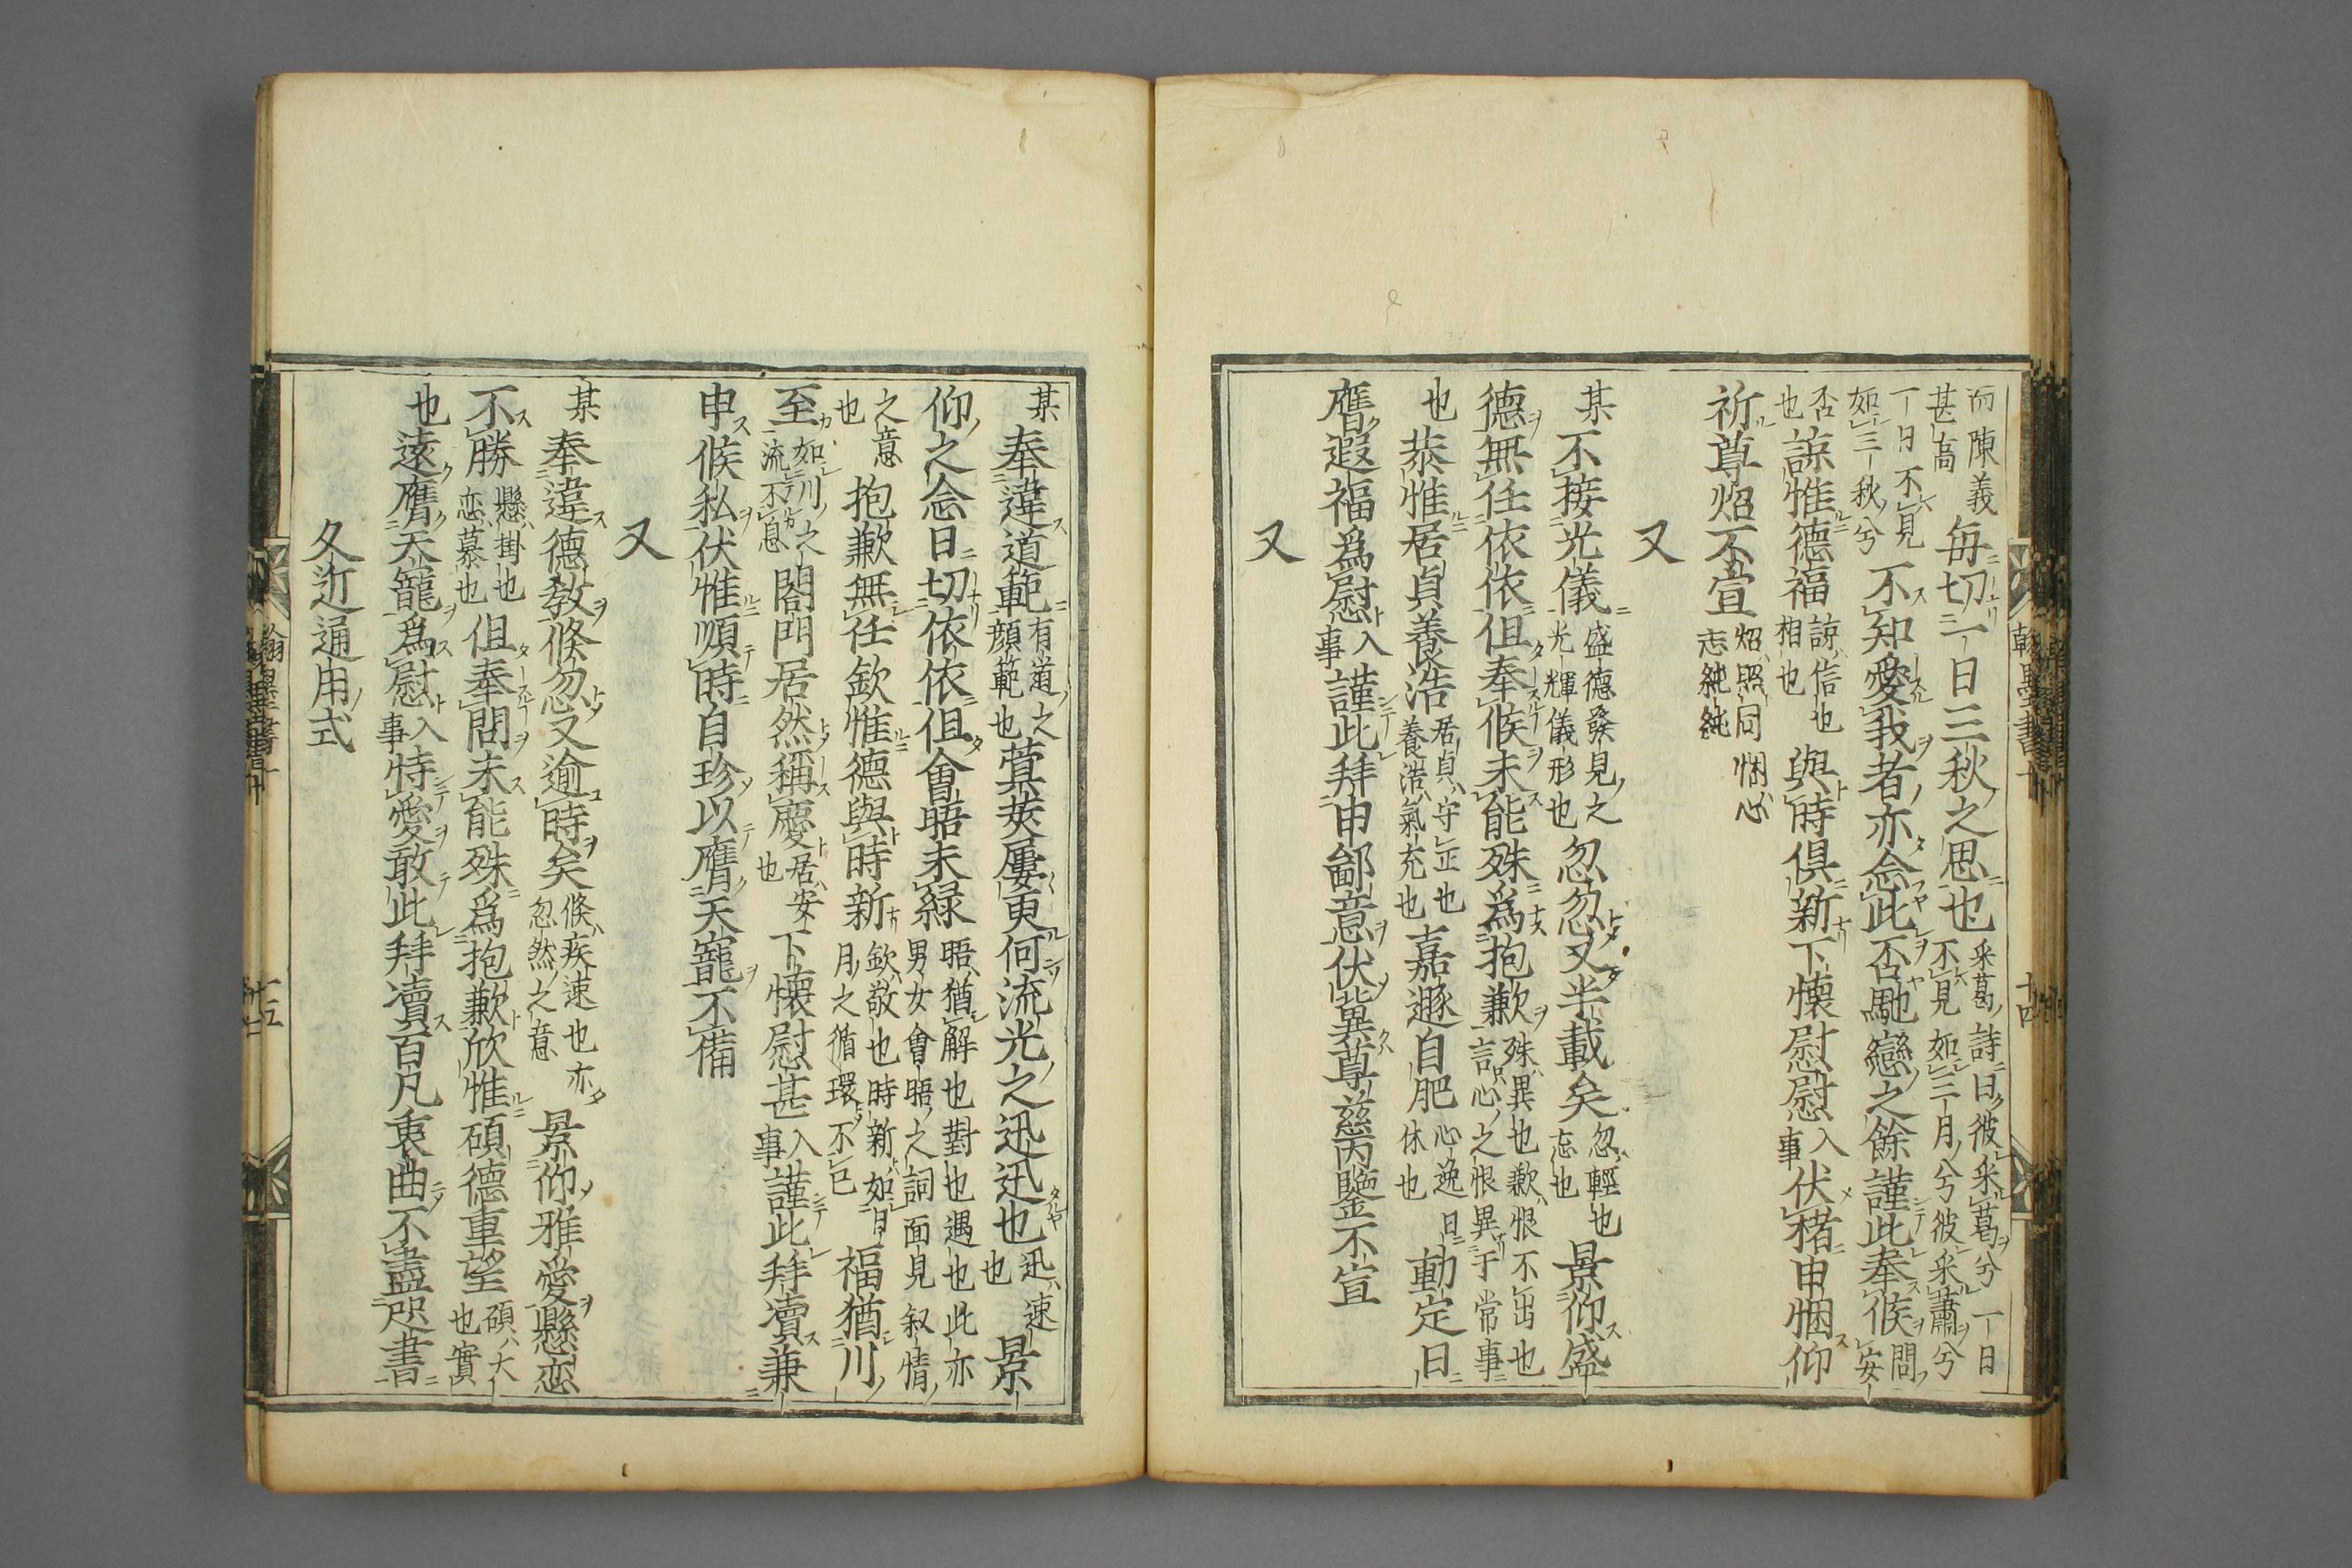 而陳義甚高每切一日三秋之思也采葛詩曰彼采葛兮一日不見如三月兮彼采蕭兮
一日不見如三秋兮不知愛我者亦念此否馳戀之餘謹此奉候問安
否也諒惟德福諒信也相也與時俱新下懷慰慰入事伏楮申悃仰
祈尊炤不宣炤照同悃心志純純
又
某不接光儀盛德發見之光輝儀形也忽忽又半載矣忽輕也忘也景仰盛
德無任依依但奉候未能殊爲抱歉殊異也歉恨不出也言心之恨異于常事
也恭惟居貞養浩居貞守正也養浩氣充也嘉遯自肥心逸日休也動定日
膺遐福爲慰入事謹此拜申鄙意伏冀尊慈丙鑒不宣
又
翰墨書
十四
某奉違道範有道之顔範也蓂莢屢更何流光之迅迅也迅速也景
仰之念日切依依但會晤未緑晤猶解也對也遇也此亦男女會晤之詞面見叙情
之意也抱歉無任欽惟德與時新欽敬也時新如日月之循環不已福猶川
至如川之流不息閤門居然稱慶居安也下懷慰甚入事謹此拜瀆兼
申候私伏惟順時自珍以膺天寵不備
又
某奉違德敎倏忽又逾時矣倏疾速也亦忽然之意景仰雅愛懸恋
不勝懸掛也恋慕也但奉問未能殊爲抱歉欣惟碩德重望碩大也實
也遠膺天寵爲慰入事恃愛敢此拜瀆百凡衷曲不盡咫書
久近通用式
十五